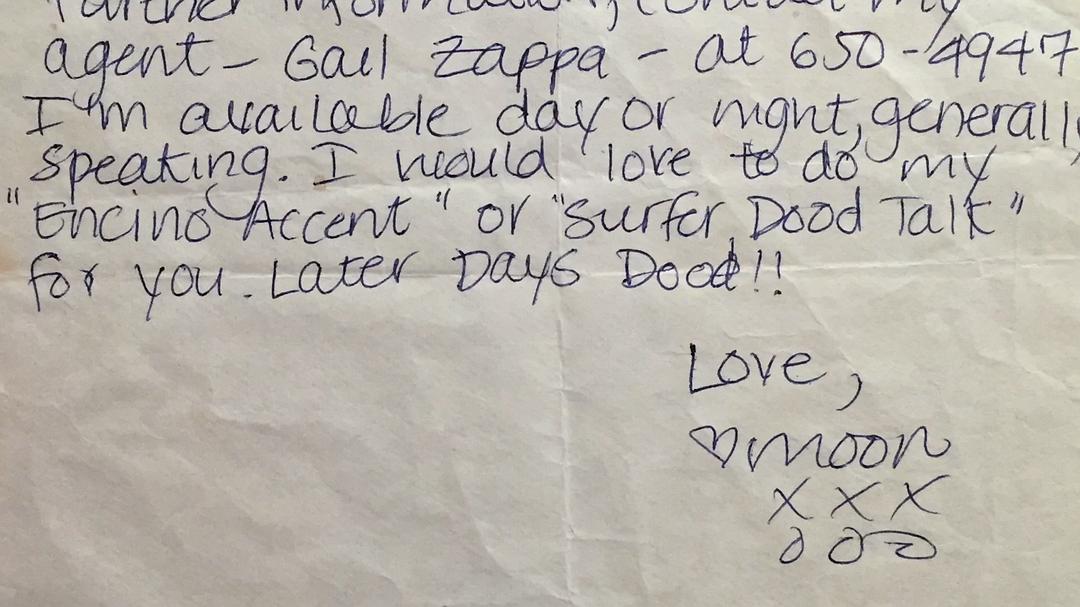 further information, contact my
agent - Gail Zappa - at 650-4947
I'm available day or night, generally
speaking. I would love to do my
"Encino Accent" or "Surfer Dood Talk"
for you. Later Days Dood!!
Love,
♡ moon
X X X
O O O